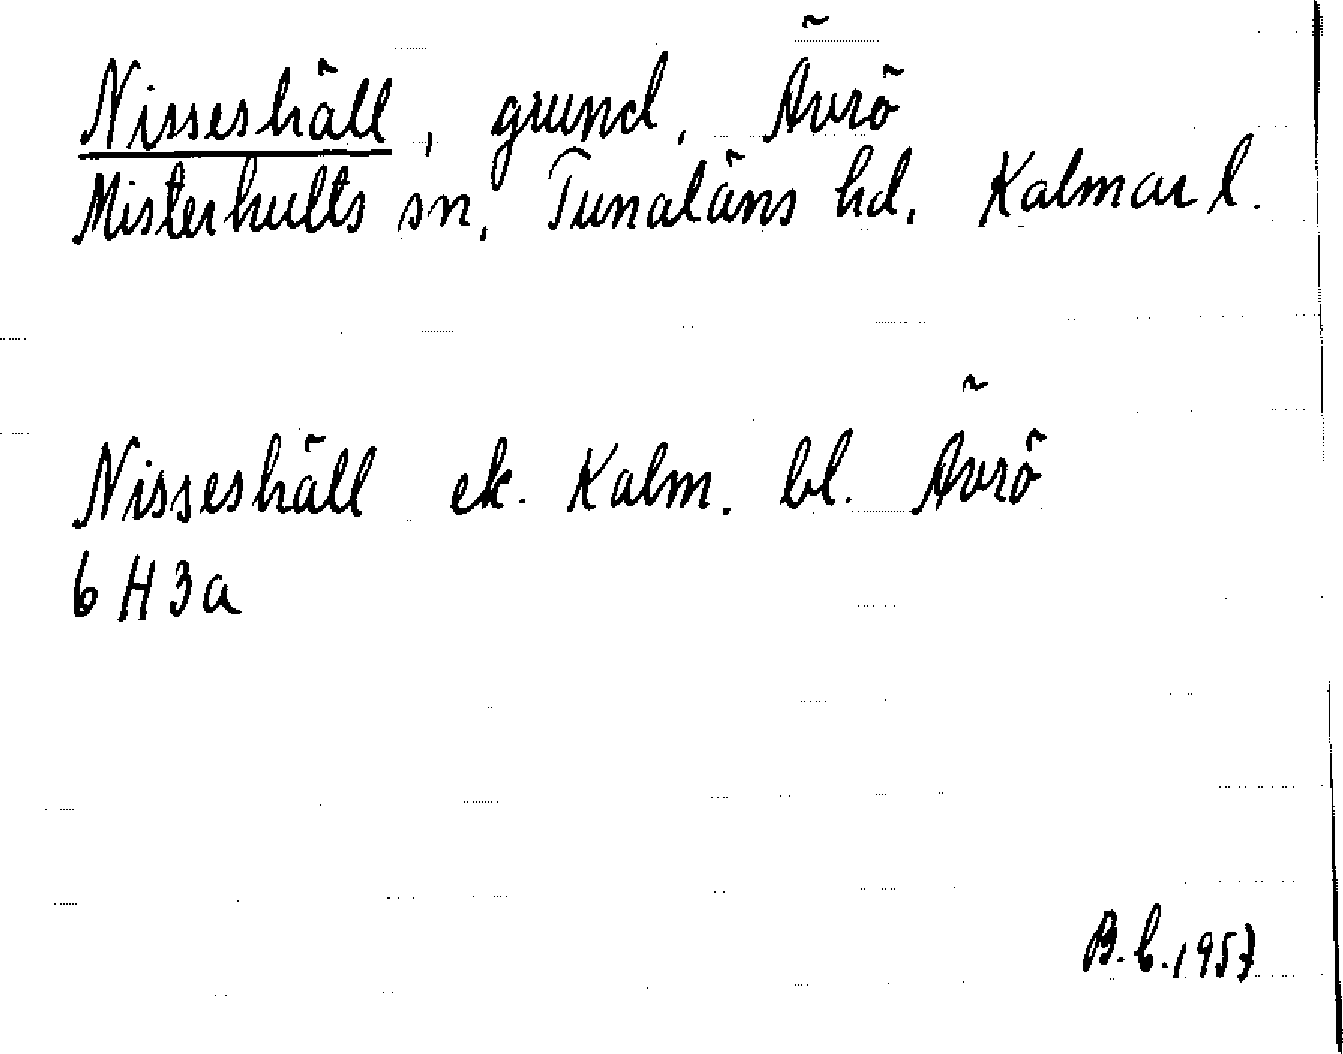 Nisseshäll, grund, Ävrö
Misterhults sn, Tunaläns hd. Kalmar l.
Nisseshäll ek. Kalm. bl. Ävrö
6 H 3 a
B.b. 1957